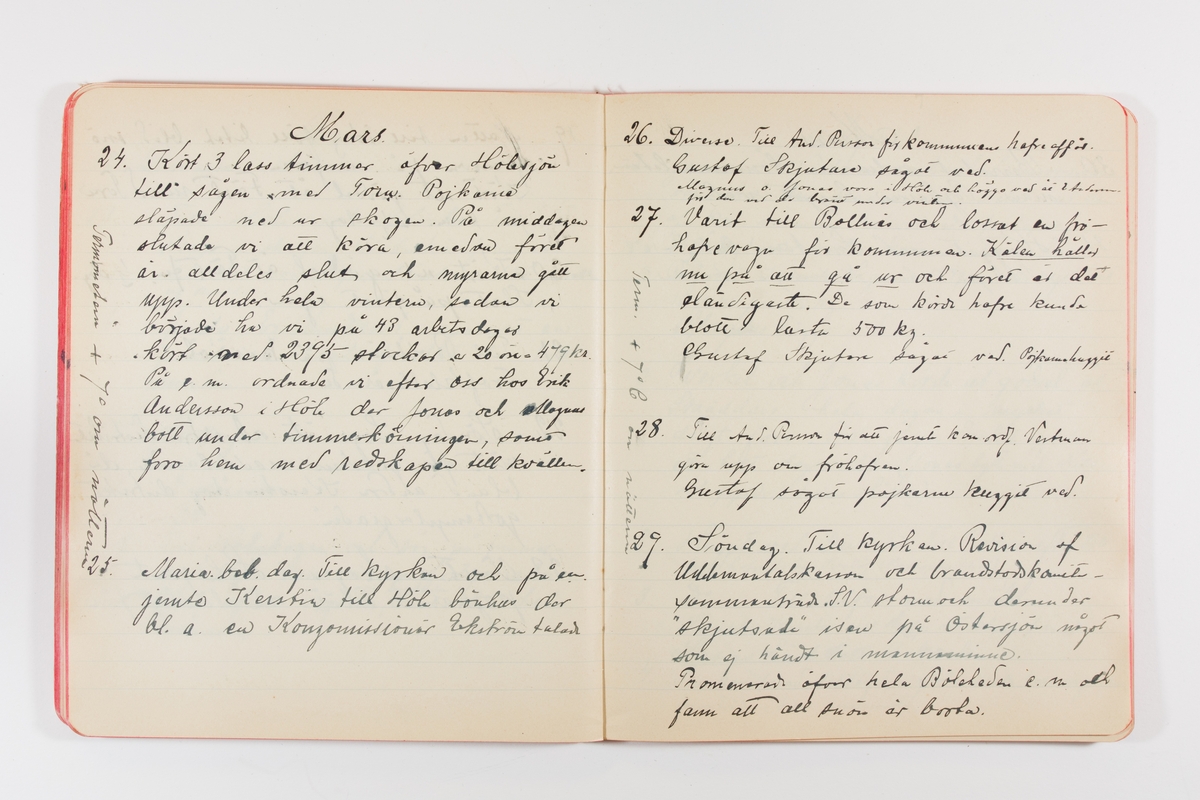 Mars.
24. Kört 3 lass timmer öfver Hölesjön
till sågen med Torn. Pojkarna
släpade ned ur skogen. På middagen
slutade vi att köra, emedan föret
är alldeles slut och myrarna gått
upp. Under hela vintern, sedan vi
började ha vi på 43 arbetsdagar
kört ned 2395 stockar a 20 öre = 479 kr.
På e.m. ordnade vi efter oss hos Erik
Andersson i Höle der Jonas och Magnus
bott under timmerkörningen, samt
foro hem med redskapen till kvällen.
Termometern + 7° om nätterna
25. Maria beb. dag. Till kyrkan och på em.
jemte Kerstin till Höle bönhus der
bl. a. en Kongomissionär Ekström talade
26. Diverse. Till And. Persson för kommunens hafreaffär.
Gustaf Skjutare sågat ved.
Magnus o. Jonas voro i Höle och höggo ved åt E Andersson
för den ved de bränt under vintern.
27. Varit till Bollnäs och lossat en frö-
hafrevagn för kommunen. Kälen håller
nu på att gå ur och föret är det
eländigaste. De som körde hafre kunde
blott lasta 500 kg.
Gustaf Skjutare sågat ved. Pojkarna huggit
Term. + 7°C om nätterna
28. Till And. Persson för att jemte kom. ordf. Vestman
göra upp om fröhafren.
Gustaf sågat pojkarne huggit ved.
29. Söndag. Till kyrkan. Revision af
Uddemantalskassan och brandstodskomité-
sammanträde. S.V. storm och derunder
"skjutsade" isen på Östersjön något
som ej händt i mannaminne.
Promenerade öfver hela Böleheden e.m. och
fann att all snön är borta.